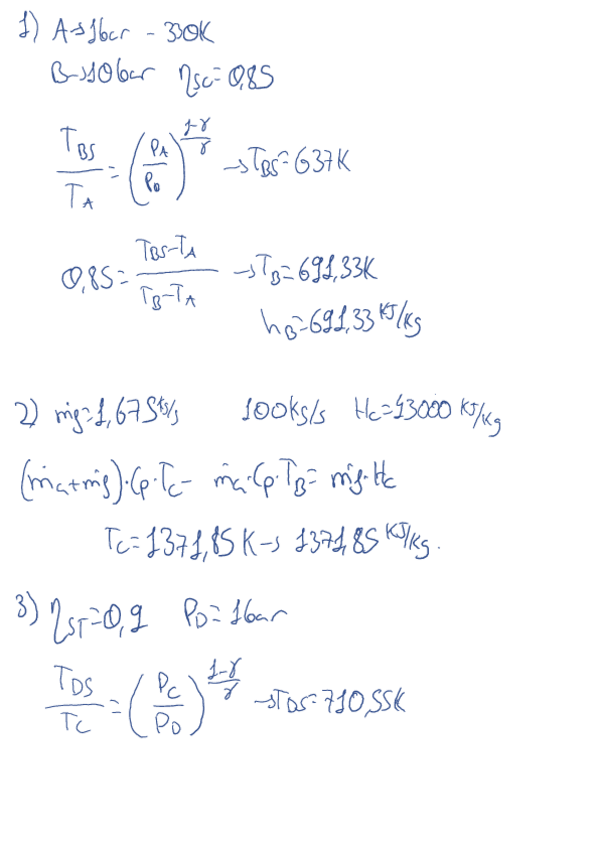 1) A→1bar - 330K
B→10bar ηSC=0,85
TBS/TA = (PA/PB)^((1-γ)/γ) →TBS=637K
0,85= (TBS-TA)/(TB-TA) →TB=691,33K
hB=691,33 KJ/kg
2) ṁf=1,675 kg/s 100kg/s Hc=43000 KJ/kg
(ṁa+ṁf)·Cp·Tc- ṁa·Cp·TB= ṁf·Hc
Tc=1371,85K→ 1371,85 KJ/kg.
3) ηST=0,9 PD=1bar
TDS/TC = (PC/PD)^((1-γ)/γ) →TDS=710,55K